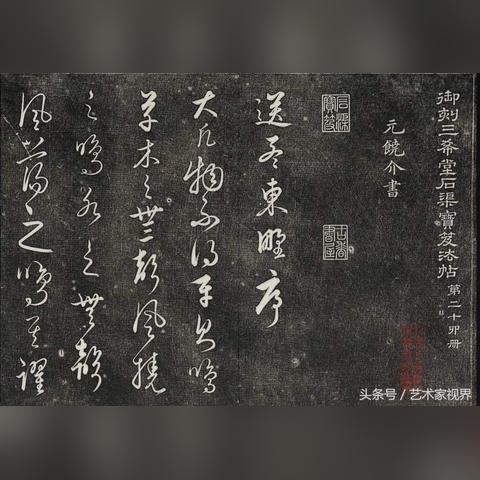 御刻三希堂石渠寶笈法帖 第二十四册
元饒介書
石渠寶笈
送孟東野序
大凡物不得平則鳴
草木之無聲風撓
之鳴水之無聲
風蕩之鳴其躍
头条号 / 艺术家视界